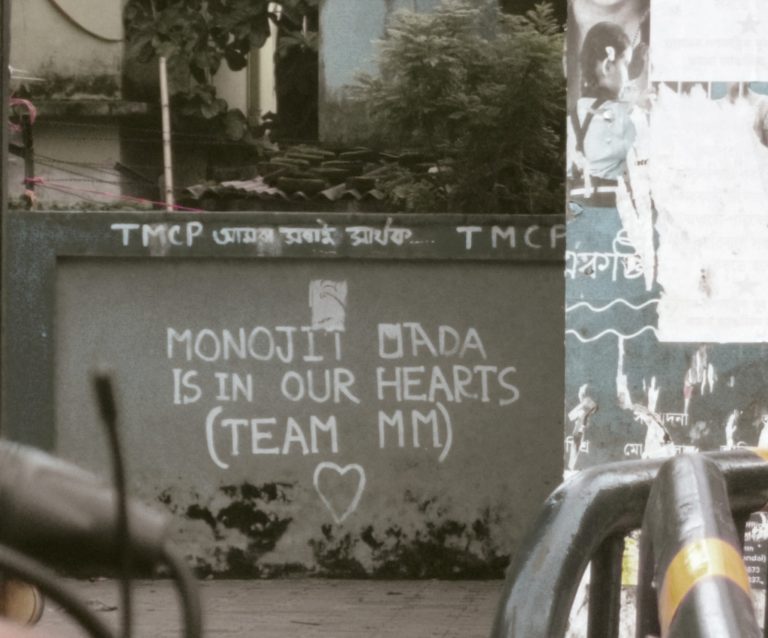 TMCP আমরা সবাই সার্থক.... TMCP
MONOJIT DADA
IS IN OUR HEARTS
(TEAM MM)